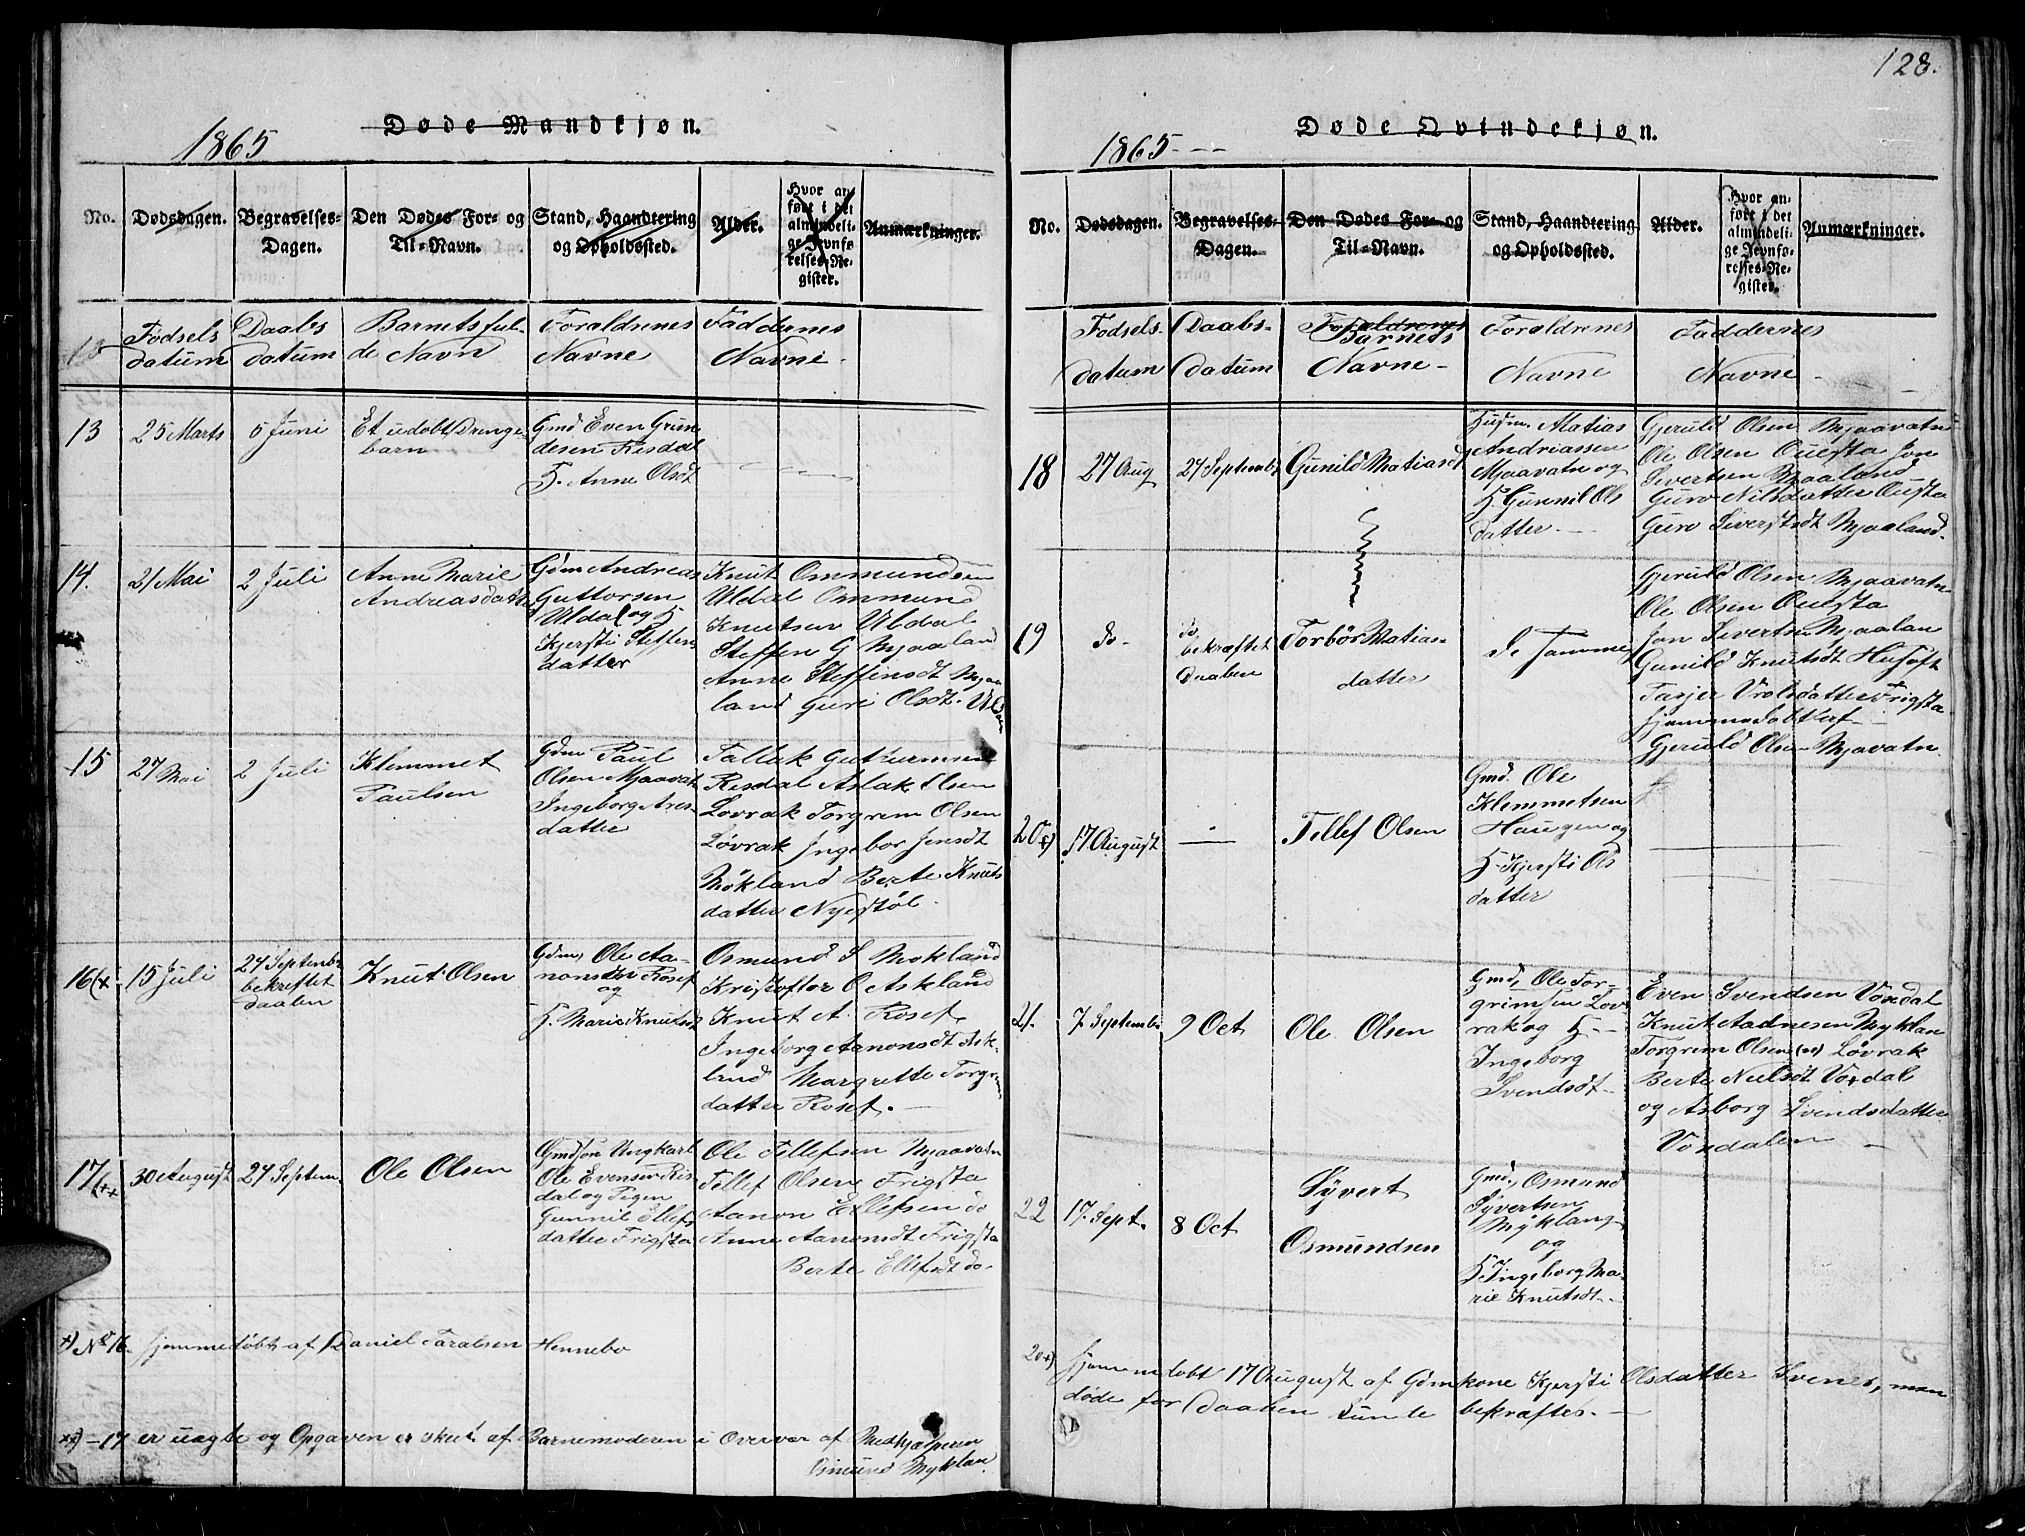 128.
Døde Mandkjøn.
1865
No.
Dødsdagen.
Begravelses-
Dagen.
Den Dødes For- og
Til-Navn.
Stand, Haandtering
og Opholdssted.
Alder.
Hvor an-
ført i det
almindeli-
ge Jevnfø-
relses-Re-
gister.
Anmærkninger.
Fødsels
datum
Daabs
datum
Barnets ful-
de Navn
Foraldrenes
Navne
Faddernes
Navne
13
25 Marts
5 Juni
Et udøbt Drenge-
barn
Gmd Even Grun
desen Risdal
H. Anne Olsdt
14.
21 Mai
2 Juli
Anne Marie
Andreasdatter
Gdm Andreas
Guttorsen
Uldal og H
Kjersti Steffens
datter
Knut Ommundsen
Uldal Ommund
Knutsen Uldal
Steffen G Mjaaland
Anne Steffensdt Mjaa
land Guri Olsdt. Uldal
15
27 Mai
2 Juli
Klemmet
Paulsen
Gdm Paul
Olsen Mjaavat
Ingeborg Ares
datter
Tallak
Risdal Aslak Olsen
Løvrak Torgrem Olsen
Løvrak Ingebor Jensdt
Møkland Berte Knuts
datter Nyestøl.
16(x
15 Juli
24 Septembr
bekreftet
daaben
Knut Olsen
Gdm, Ole Aa-
nonsen Rosef
og
H. Marie Knutsdt
Osmund S Mokland
Kristoffer O Askland
Knut A. Rosef
Ingeborg Aanonsdt Ask-
land Margrette Torgrems
datter Rosef.
17(xx
30 August
24 Septem.
Ole Olsen
Gmdsøn Ungkarl
Ole Evensen Ris-
dal og Pigen
Gunnil Ellefs
datter Frigsta
Ole Tellefsen Mjaavatn
Tellef Olsen Frigsta
Aanon Ellefsen do
Anne Aanonsdt Frigsta
Berte Ellefsdt do-
x) No 16. hjemmedøbt af Daniel Taralsen Hennebo
xx) - 17 er uagte og Opgaven er skeet af Barnemoderen i Overvær af Medhjælperen
Osmund Myklan
Døde Qvindekjøn.
1865
No.
Dødsdagen.
Begravelses-
Dagen.
Den Dødes For- og
Til-Navn.
Stand, Haandtering
og Opholdssted.
Alder.
Hvor an-
ført i det
almindeli-
ge Jevnfø-
relses-Re-
gister.
Anmærkninger.
Fødsels
datum
Daabs-
datum
Foraldrenes
Barnets
Navne-
Foraldrenes
Navne
Faddernes
Navne
18
27 Aug
24 Septembr
Gunild Matiasdt
Husm. Matias
Andriassen
Mjaavatn og
H Gunnil Ols
datter
Gjeruld Olsen Mjaavatn
Ole Olsen Ousta Jon
Sivertsen Mjaaland
Guro Nilsdatter Ousta
Guro Siverstsdt Mjaaland.
19
do-
do
bekræftet
Daaben
Torbør Matias
datter
de samme
Gjeruld Olsen Mjaavatn
Ole Olsen Ousta
Jon Sivertsen Mjaalan
Gunild Knutsdt Husøft
Tarjer Vrolsdatter Frigsta
hjemmedøbt af
Gjeruld Olsen Mjavatn.
20x)
17 August
Tellef Olsen
Gmd. Ole
Klemmetsen
Haugen og
H- Kjersti Ols
datter
21.
7 Septembr
9 Oct
Ole Olsen
Gmd, Ole Tor-
grimsen Løv
rak og H-
Ingeborg
Svendsdt
Even Svendsen Vordal
Knut Aadnesen Myklan
Torgrem Olsen Løvrak
Berte Nielsdt Vordal
og Asborg Svendsdatter
Vordalen
22
17. Sept.
8 Oct
Syvert
Osmundsen
Gmd, Osmund
Syvertsen
Myklan
og
H Ingeborg Ma-
rie Knutsdt.
20x) hjemmedøbt 17 August af Gdmkone Kjersti Olsdatter Svenes, men
døde før Daaben kunde bekræftes.